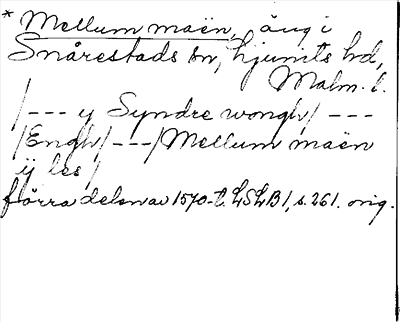 * Mellum maën, äng i
Snårestads sn, Ljunits hd,
Malm. l.
/--- y Syndre wongh/ ---
/Engh/---/Mellum maën
ÿ les/
förra delen av 1570-t. LSLB1, s. 261. orig.